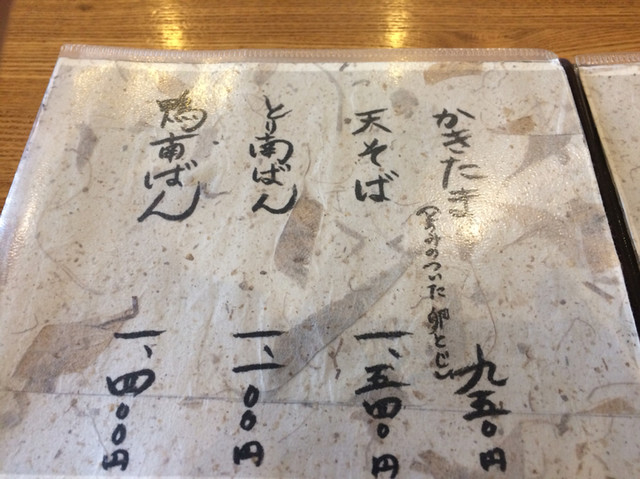 かきたま
(つるみのついた卵とじ)
九五〇円
天そば
一、五四〇円
とり南ばん
一、一〇〇円
鴨南ばん
一、四〇〇円